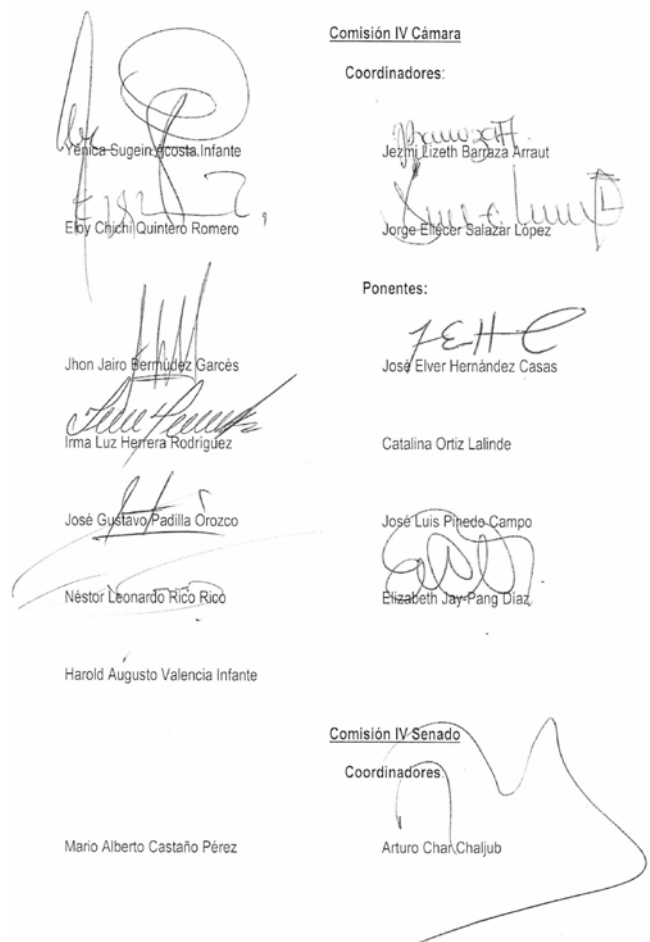 Comisión IV Cámara
Coordinadores:
Yenica Sugein Acosta Infante
Jezmi Lizeth Barraza Arraut
Eloy Chichi Quintero Romero
Jorge Eliécer Salazar López
Ponentes:
Jhon Jairo Bermúdez Garcés
José Elver Hernández Casas
Irma Luz Herrera Rodríguez
Catalina Ortiz Lalinde
José Gustavo Padilla Orozco
José Luis Pinedo Campo
Néstor Leonardo Rico Rico
Elizabeth Jay-Pang Díaz
Harold Augusto Valencia Infante
Comisión IV Senado
Coordinadores:
Mario Alberto Castaño Pérez
Arturo Char Chaljub